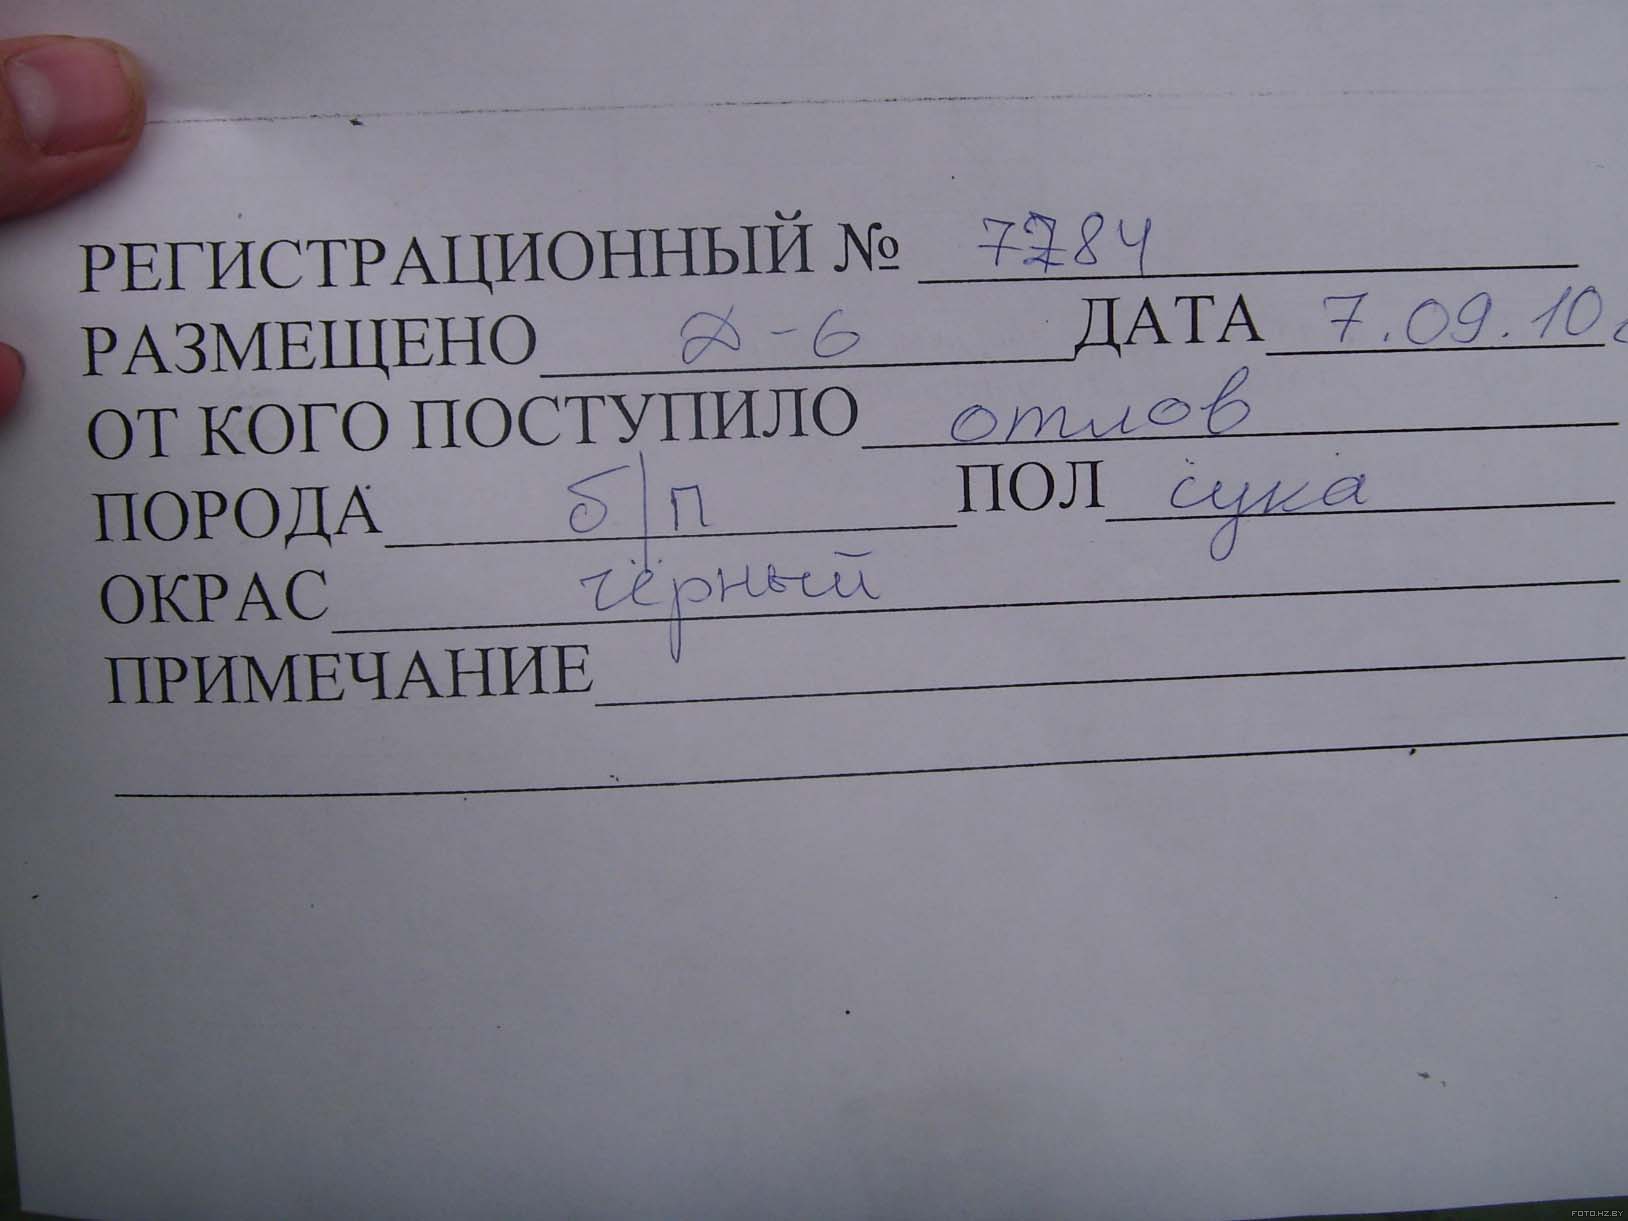 РЕГИСТРАЦИОННЫЙ № 7784
РАЗМЕЩЕНО Д-6 ДАТА 7.09.10г
ОТ КОГО ПОСТУПИЛО отлов
ПОРОДА б/п ПОЛ сука
ОКРАС чёрный
ПРИМЕЧАНИЕ
FOTO.HZ.BY